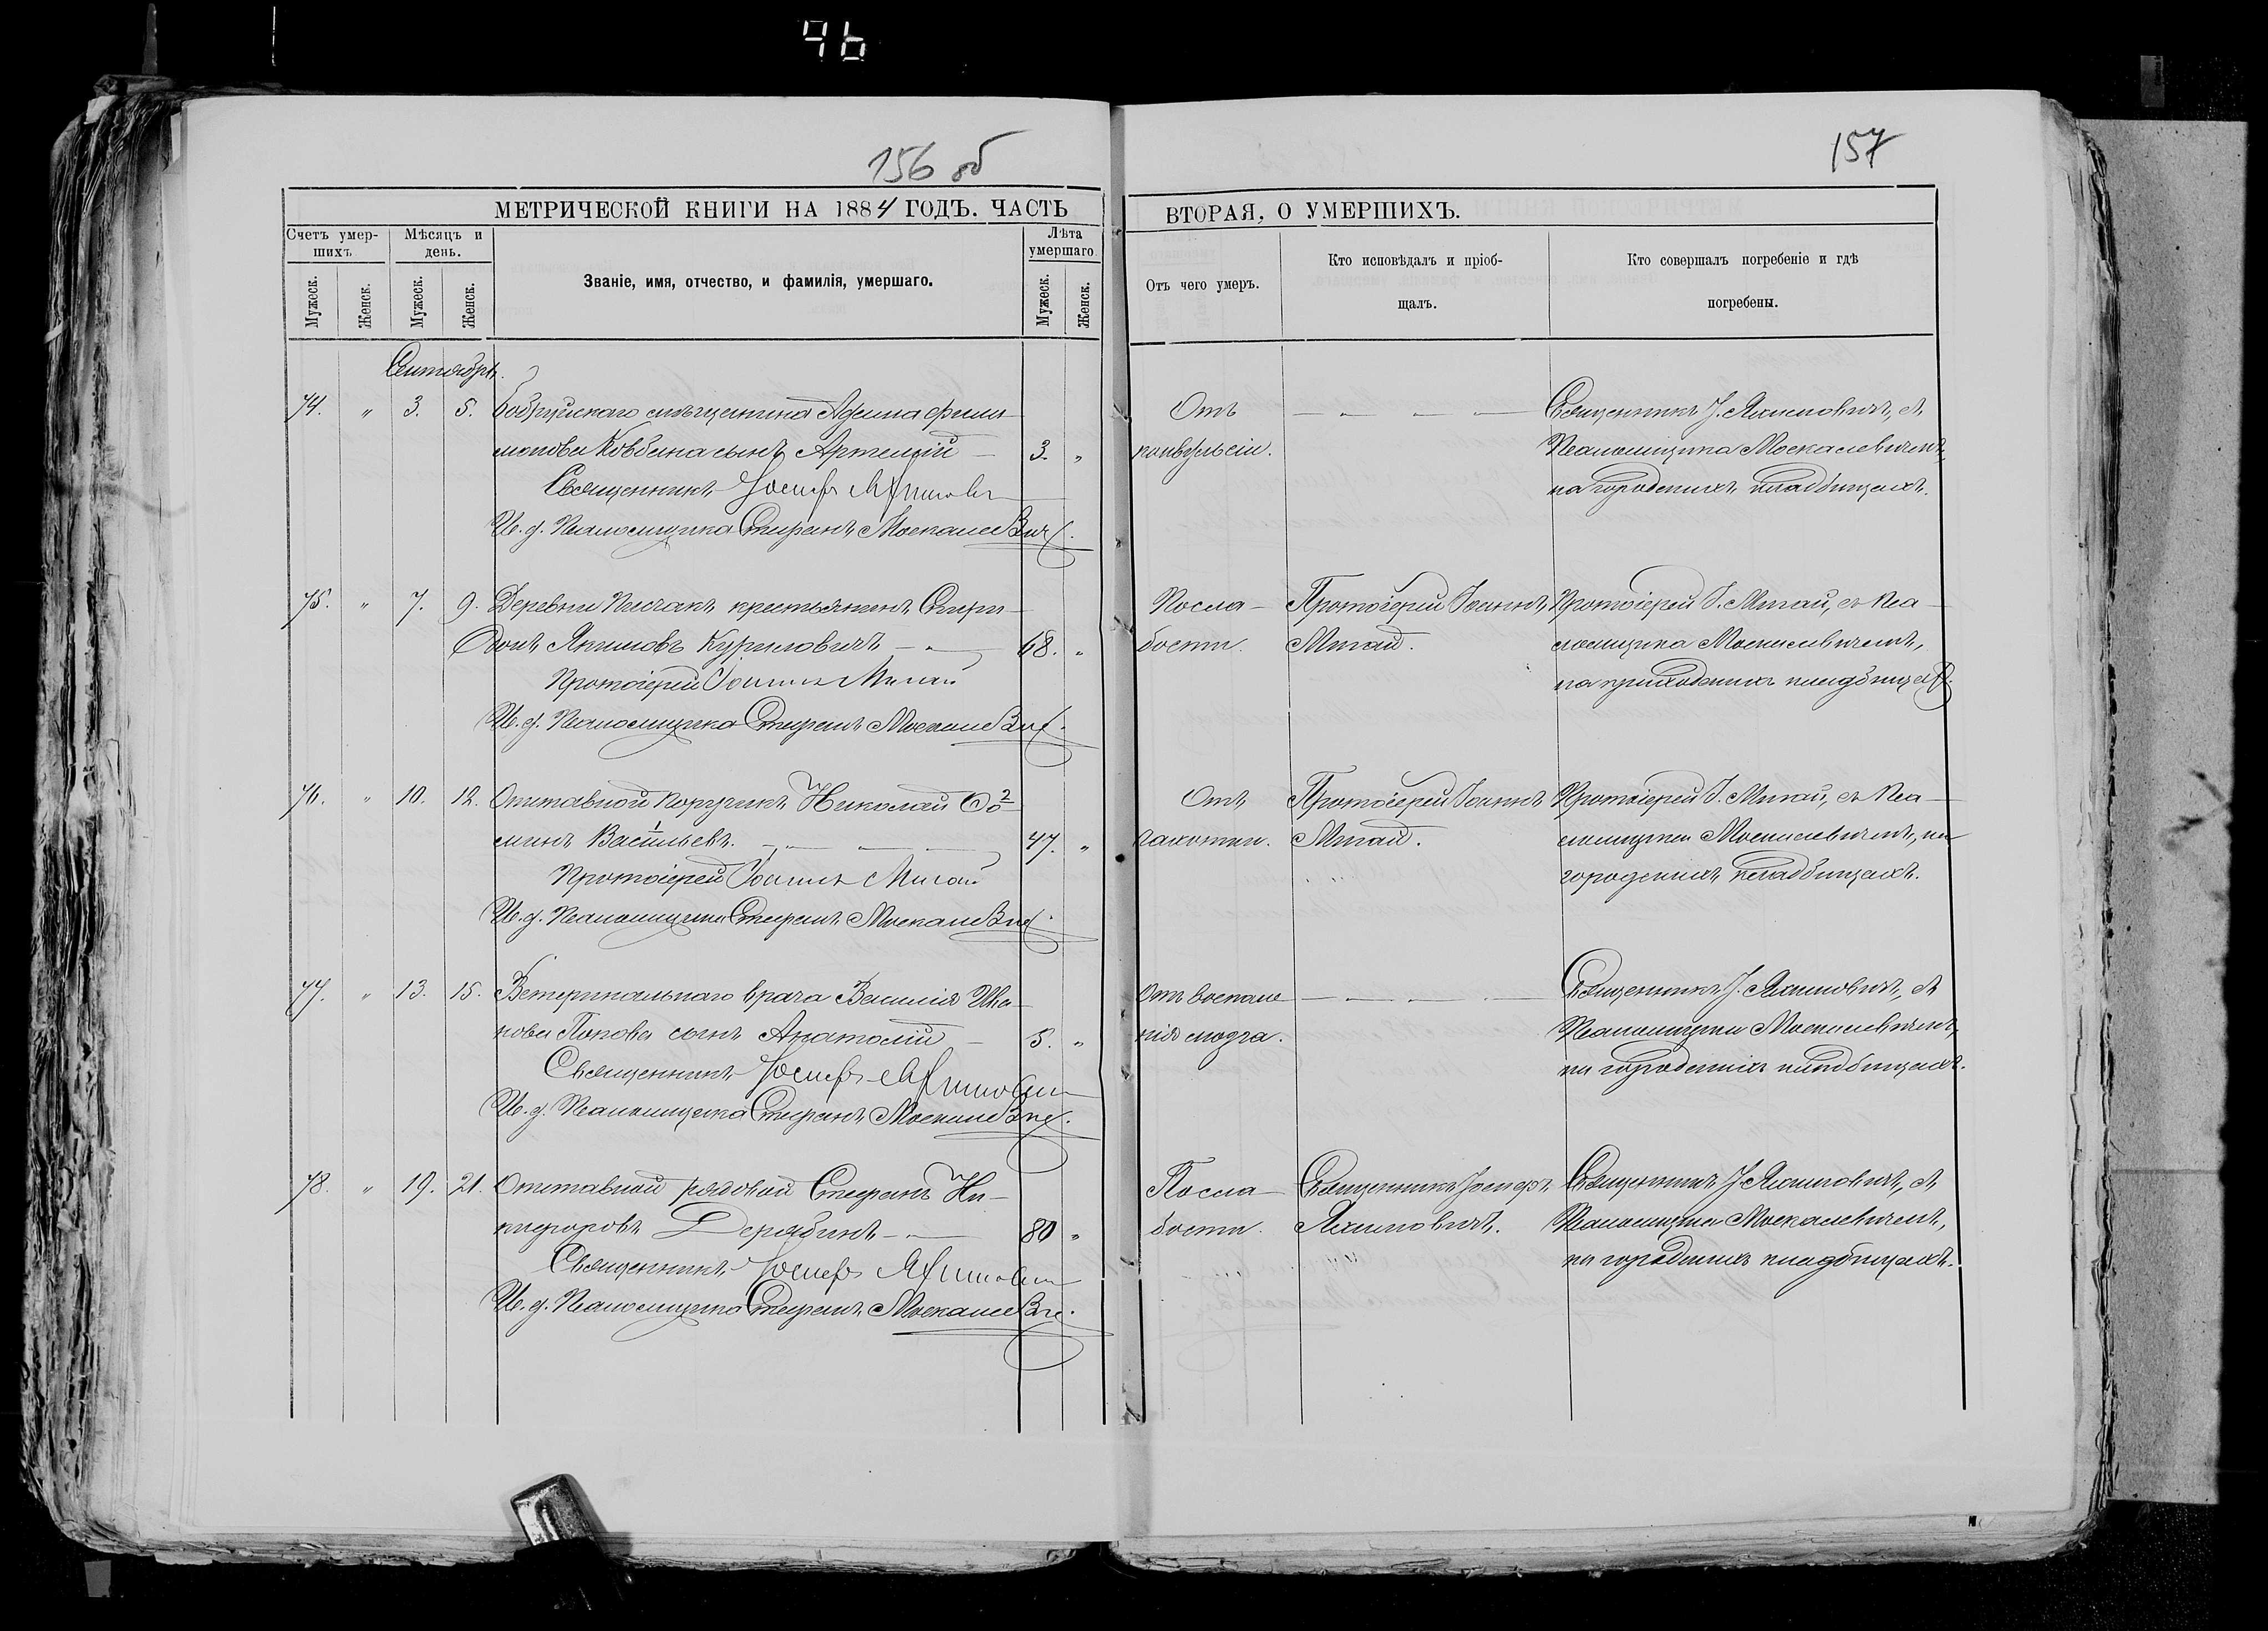 156 об
157
МЕТРИЧЕСКОЙ КНИГИ НА 1884 ГОДЪ. ЧАСТЬ
ВТОРАЯ, О УМЕРШИХЪ.
Счетъ умер-
шихъ
Мѣсяцъ и
день.
Званіе, имя, отчество, и фамилія, умершаго.
Лѣта
умершаго
Отъ чего умеръ.
Кто исповѣдалъ и пріоб-
щалъ.
Кто совершалъ погребеніе и гдѣ
погребены.
Мужеск.
Женск.
Мужеск.
Женск.
Мужеск.
Женск.
Сентябрь.
74. " 3. 5. Бобруйскаго мѣщанина Ефима Фили-
монова сынъ Артемій 3. "
Священникъ Іосифъ Яхимовичъ
И. д. Псаломщика Стефанъ Москалевичъ.
Отъ
конвульсіи.
Священникъ І. Яхимовичъ, съ
Псаломщикомъ Москалевичемъ,
на городскихъ кладбищахъ.
75. " 7. 9. Деревни крестьянинъ Спири-
донъ Якимовъ Куриловичъ 68. "
Протоіерей Іоаннъ Мигай
И. д. Псаломщика Стефанъ Москалевичъ.
По сла-
бости.
Протоіерей Іоаннъ
Мигай.
Протоіерей І. Мигай, съ Пса-
ломщика Москалевичемъ,
на приходскихъ кладбищахъ.
76. " 10. 12. Отставной Поручикъ Николай Ѳо 2
минъ Васильевъ. 1 47. "
Протоіерей Іоаннъ Мигай
И. д. Псаломщика Стефанъ Москалевичъ.
Отъ
чахотки.
Протоіерей Іоаннъ
Мигай.
Протоіерей І. Мигай, съ Пса-
ломщика Москалевичемъ, на
городскихъ кладбищахъ.
77. " 13. 15. Ветеринальнаго врача Василія Ива-
нова Попова сынъ Анатолій 5. "
Священникъ Іосифъ Яхимовичъ
И. д. Псаломщика Стефанъ Москалевичъ.
Отъ воспале
нія мозга.
Священникъ І. Яхимовичъ, съ
Псаломщика Москалевичемъ,
на городскихъ кладбищахъ.
78. " 19. 21. Отставной рядовой Стефанъ Ни-
кифоровъ Дерябинъ 80 "
Священникъ Іосифъ Яхимовичъ
И. д. Псаломщика Стефанъ Москалевичъ.
По сла-
бости.
Священникъ Іосифъ
Яхимовичъ.
Священникъ І. Яхимовичъ, съ
Псаломщика Москалевичемъ,
на городскихъ кладбищахъ.